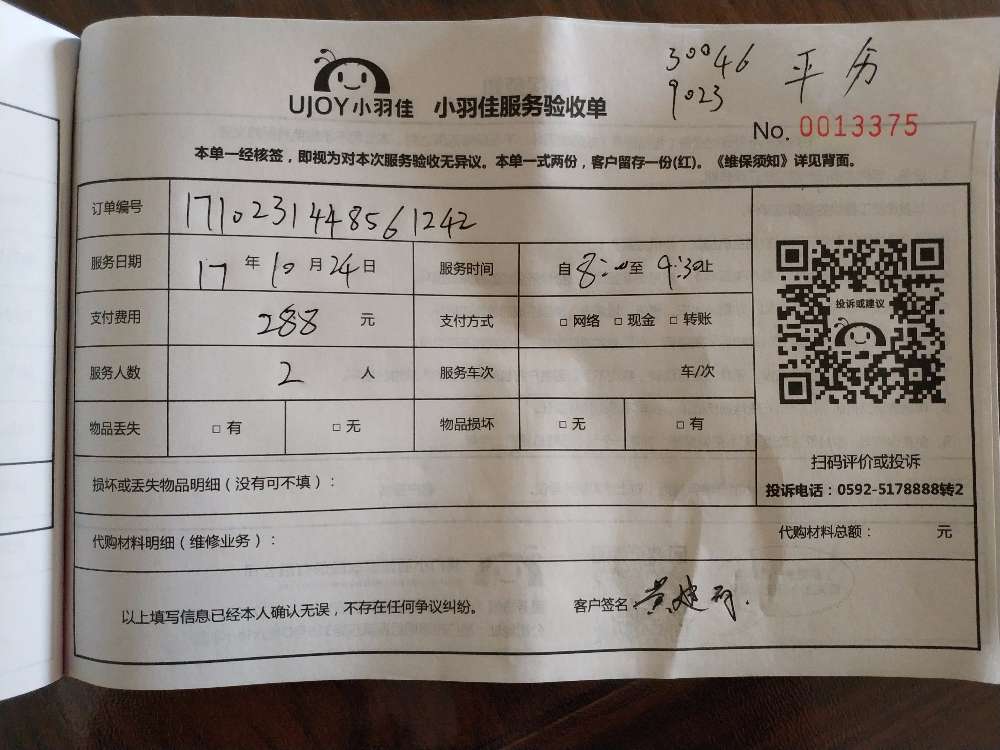 30046 平分
9023
UJOY小羽佳 小羽佳服务验收单
No. 0013375
本单一经核签，即视为对本次服务验收无异议。本单一式两份，客户留存一份(红)。《维保须知》详见背面。
订单编号 171023144856 1242
服务日期 17 年 10 月 24 日 服务时间 自 8:00 至 9:30 止
支付费用 288 元 支付方式 □ 网络 □ 现金 □ 转账
服务人数 2 人 服务车次 车/次
物品丢失 □ 有 □ 无 物品损坏 □ 无 □ 有
投诉或建议
扫码评价或投诉
投诉电话：0592-5178888转2
损坏或丢失物品明细（没有可不填）：
代购材料明细（维修业务）： 代购材料总额： 元
以上填写信息已经本人确认无误，不存在任何争议纠纷。 客户签名：黄建